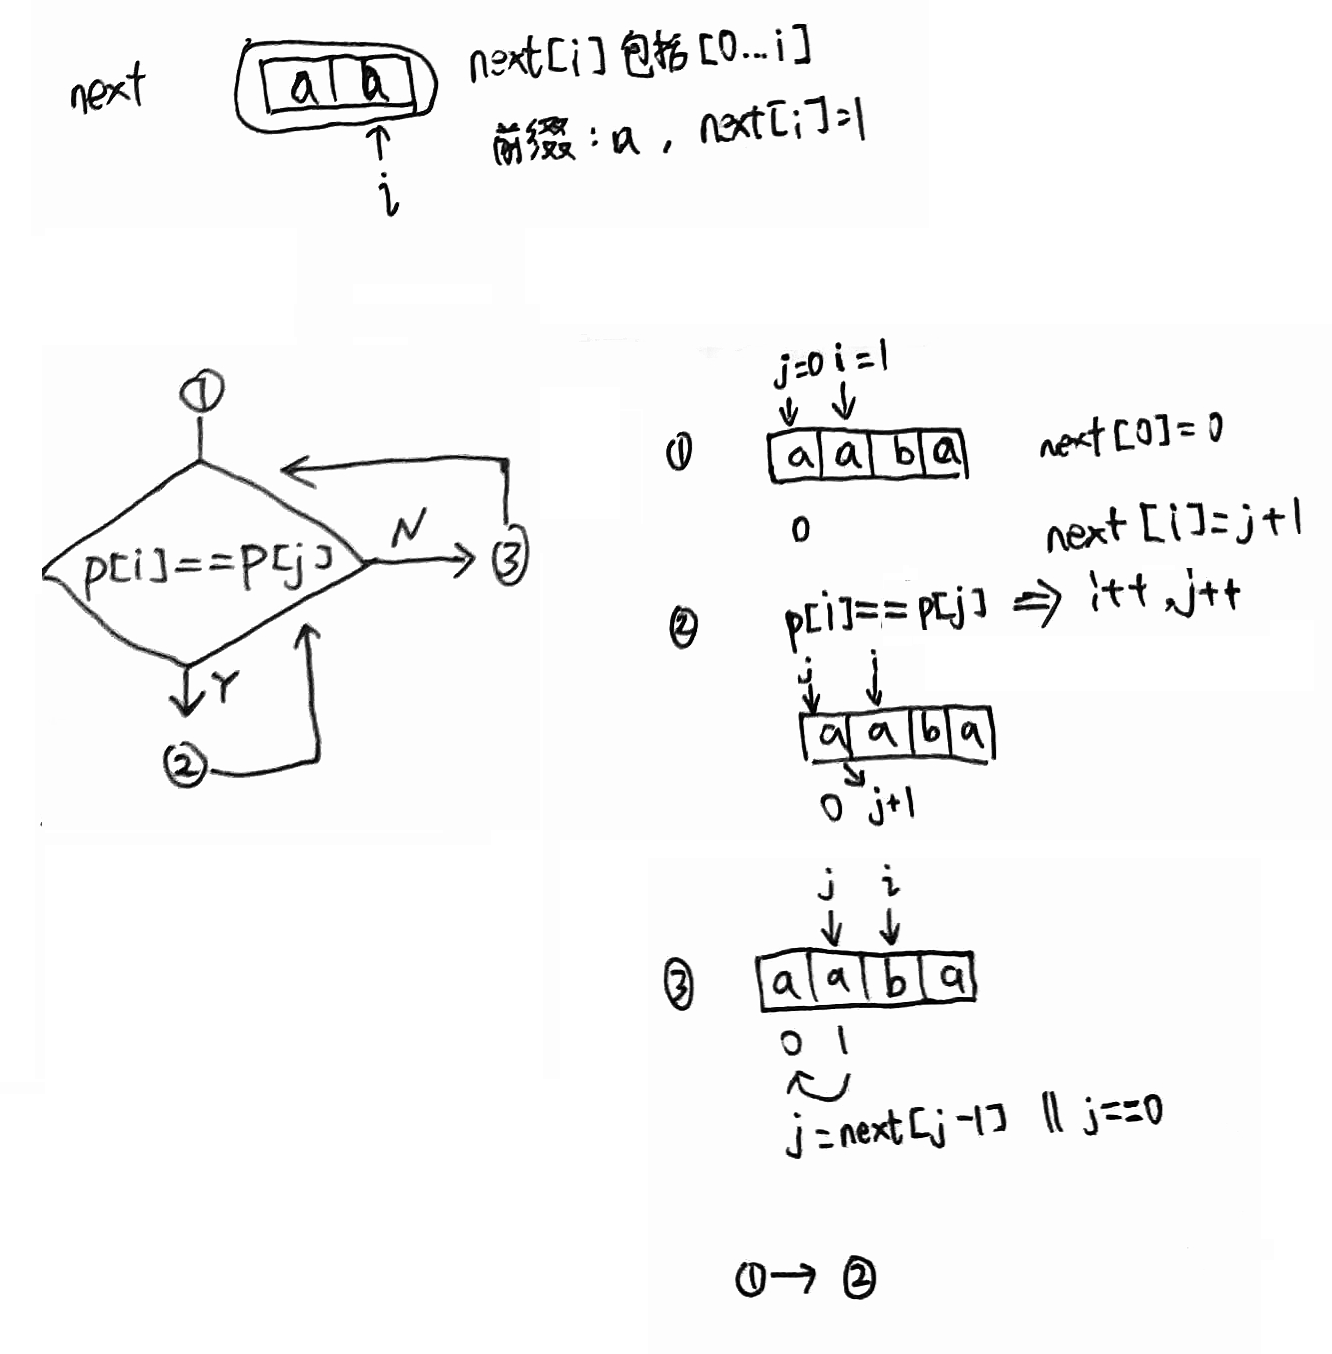 next
a a
next[i]包括[0...i]
前缀:a,next[i]=1
i
①
p[i]==p[j]
N
③
Y
②
j=0 i=1
①
a a b a
next[0]=0
0
next[i]=j+1
②
p[i]==p[j] ⇒ i++,j++
j i
a a b a
0 j+1
j i
③
a a b a
0 1
j=next[j-1] || j==0
①→②